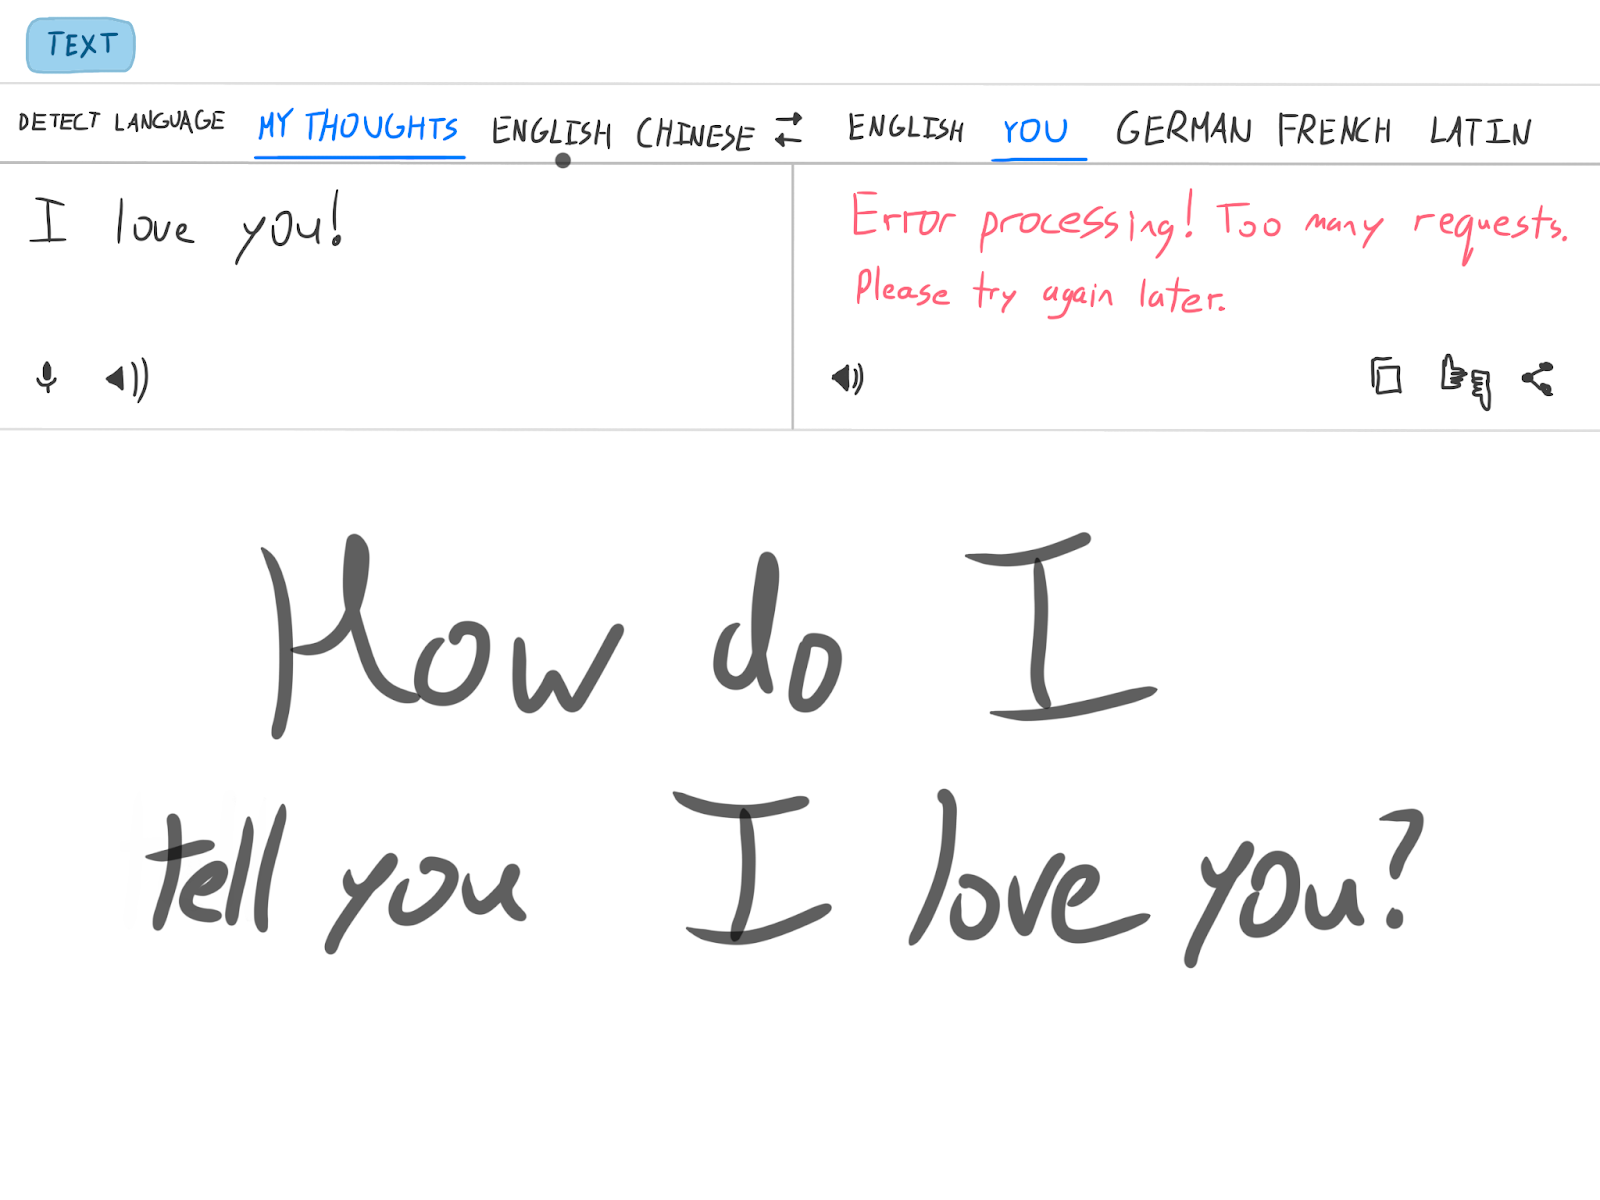 TEXT
DETECT LANGUAGE MY THOUGHTS ENGLISH CHINESE ENGLISH YOU GERMAN FRENCH LATIN
I love you!
Error processing! Too many requests.
Please try again later.
How do I
tell you I love you?